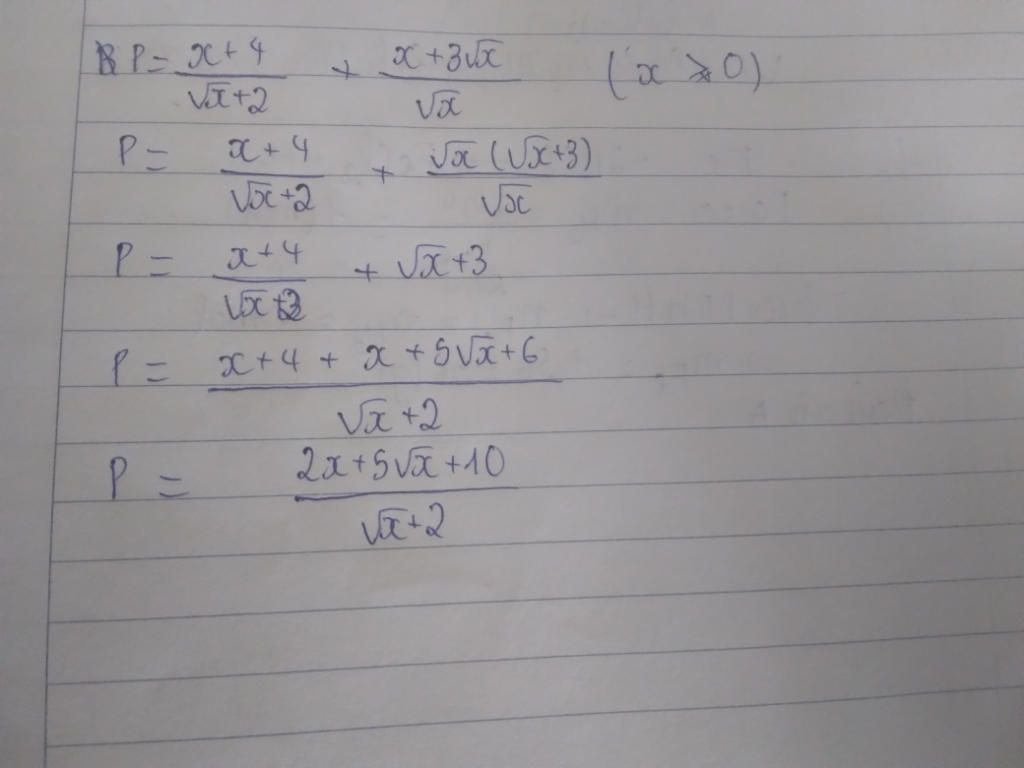 P = \frac{x+4}{\sqrt{x}+2} + \frac{x+3\sqrt{x}}{\sqrt{x}} (x > 0)
P = \frac{x+4}{\sqrt{x}+2} + \frac{\sqrt{x}(\sqrt{x}+3)}{\sqrt{x}}
P = \frac{x+4}{\sqrt{x}+2} + \sqrt{x}+3
P = \frac{x+4+x+5\sqrt{x}+6}{\sqrt{x}+2}
P = \frac{2x+5\sqrt{x}+10}{\sqrt{x}+2}